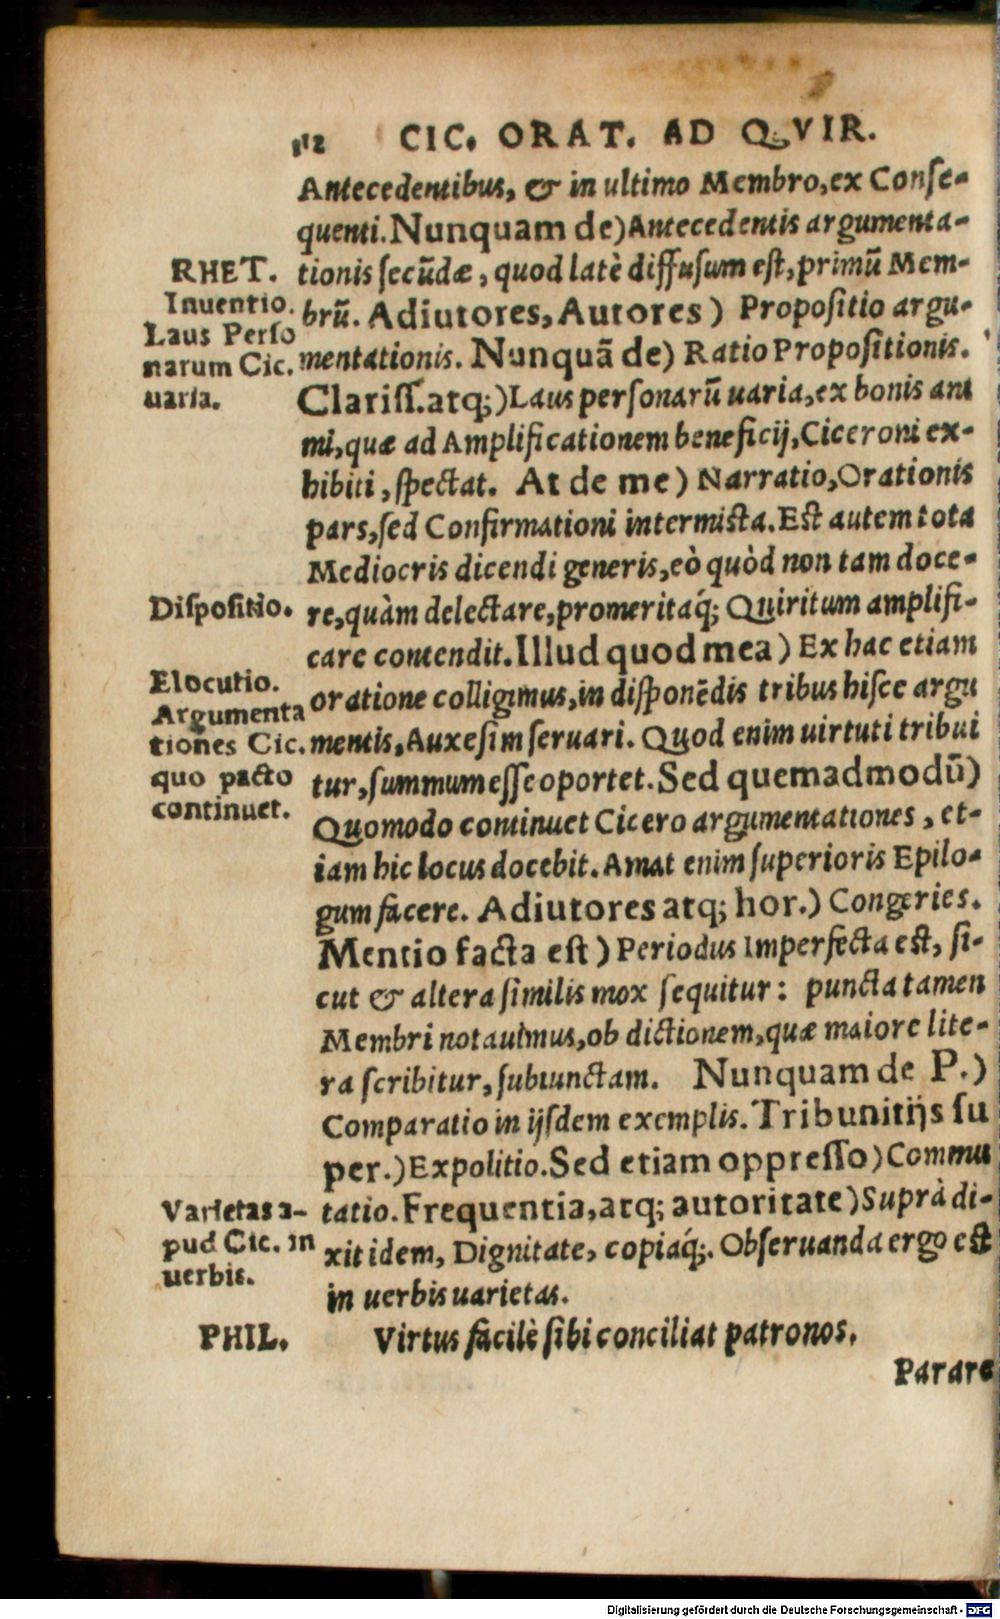 112 CIC. ORAT. AD QVIR.
Antecedentibus, & in ultimo Membro, ex Conse-
quenti. Nunquam de) Antecedentis argumenta-
RHET. tionis secũdæ, quod latè diffusum est, primũ Mem-
Inuentio. brũ. Adiutores, Autores) Propositio argu-
Laus Perso
narum Cic. mentationis. Nunquã de) Ratio Propositionis.
uaria. Clariss. atq;) Laus personarũ uaria, ex bonis ani
mi, quæ ad Amplificationem beneficij, Ciceroni ex-
hibiti, spectat. At de me) Narratio, Orationis
pars, sed Confirmationi intermista. Est autem tota
Mediocris dicendi generis, eò quòd non tam doce-
Dispositio. re, quàm delectare, promeritaq́; Quiritum amplifi-
care contendit. Illud quod mea) Ex hac etiam
Elocutio. oratione colligimus, in disponẽdis tribus hisce argu
Argumenta
tiones Cic. mentis, Auxesim seruari. Quod enim uirtuti tribui
quo pacto tur, summum esse oportet. Sed quemadmodũ)
continuet. Quomodo continuet Cicero argumentationes, et-
iam hic locus docebit. Amat enim superioris Epilo-
gum facere. Adiutores atq; hor.) Congeries.
Mentio facta est) Periodus Imperfecta est, si-
cut & altera similis mox sequitur: puncta tamen
Membri notauimus, ob dictionem, quæ maiore lite-
ra scribitur, subiunctam. Nunquam de P.)
Comparatio in ijsdem exemplis. Tribunitijs su
per.) Expolitio. Sed etiam oppresso) Commu
Varietas a- tatio. Frequentia, atq; autoritate) Suprà di-
pud Cic. in xit idem, Dignitate, copiaq́;. Obseruanda ergo est
uerbis. in uerbis uarietas.
PHIL. Virtus facilè sibi conciliat patronos.
Parare
Digitalisierung gefördert durch die Deutsche Forschungsgemeinschaft - DFG